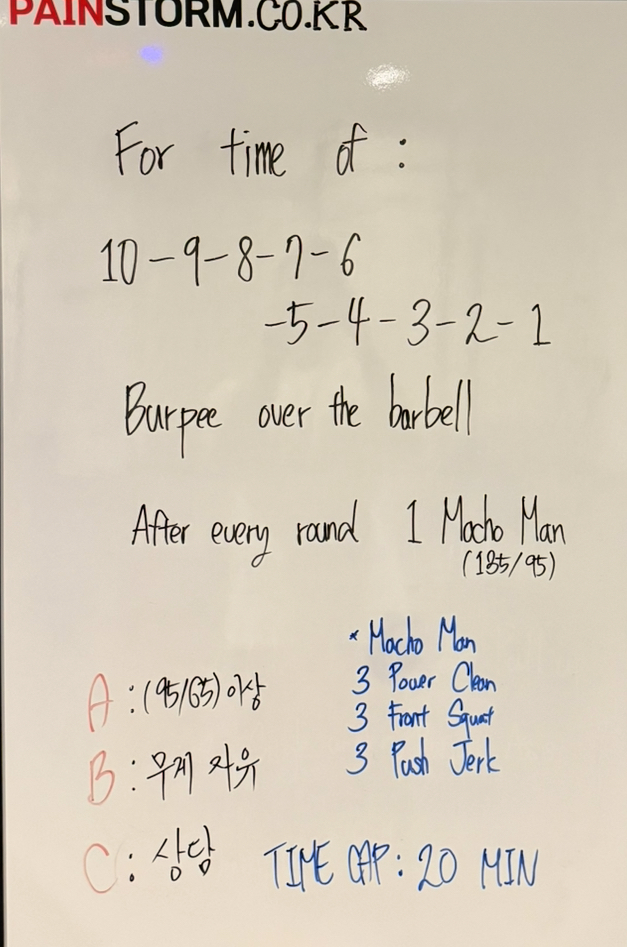 PAINSTORM.CO.KR
For time of :
10-9-8-7-6
-5-4-3-2-1
Burpee over the barbell
After every round 1 Macho Man
(135/95)
* Macho Man
3 Power Clean
3 Front Squat
3 Push Jerk
A : (95/65) 이상
B : 무게 자유
C : 상담
TIME CAP : 20 MIN